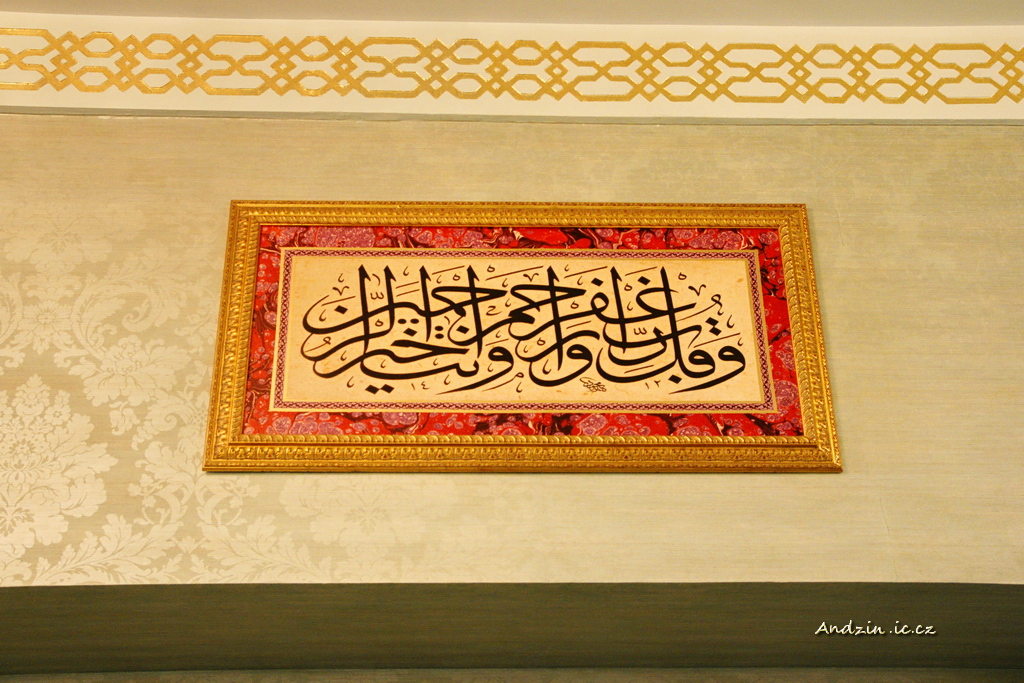 وقل رب اغفر وارحم وأنت خير الراحمين
Andzin .ic.cz